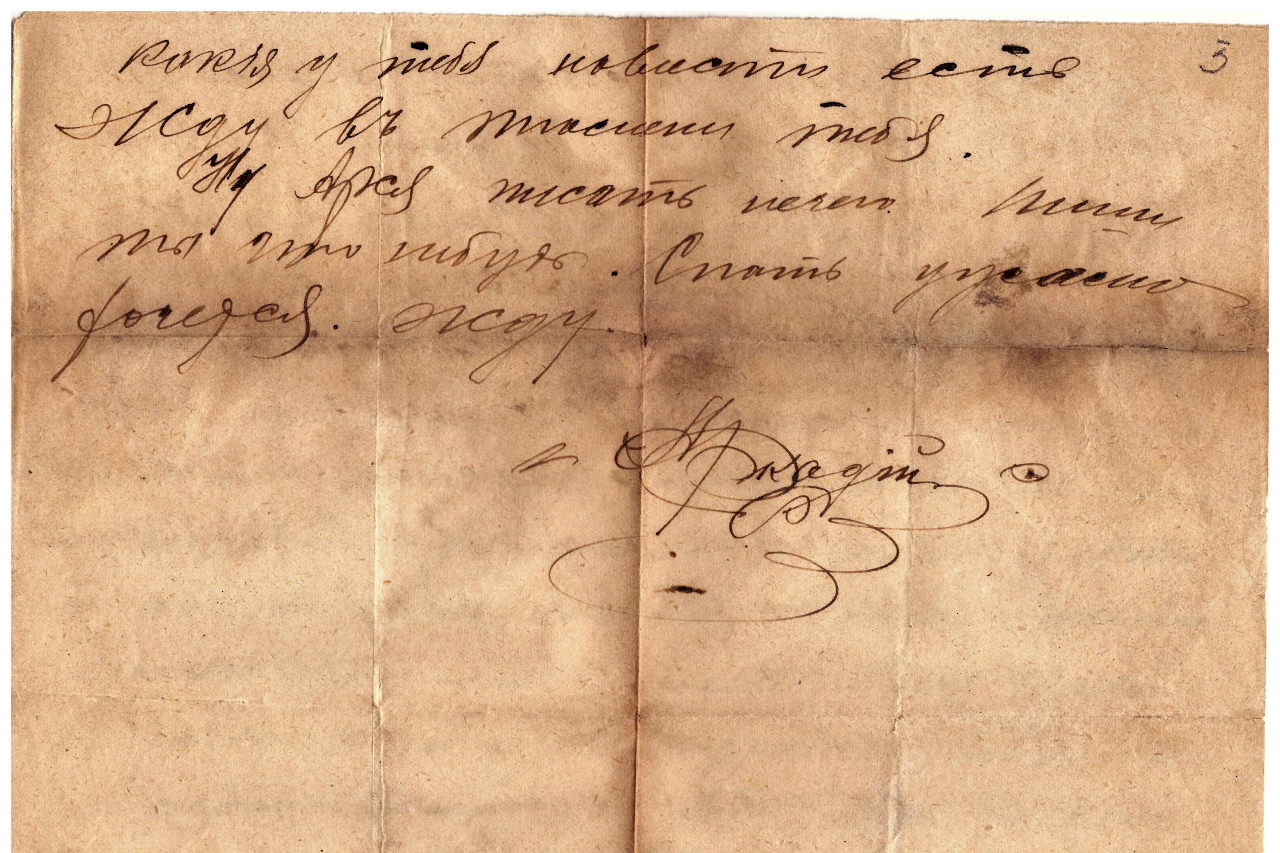 какія у тебя новости есть 3
Жду въ тебя.
Ну писать нечего. Пиши
ты что нибудь. Спать ужасно
хочется. Жду.
Аркадій